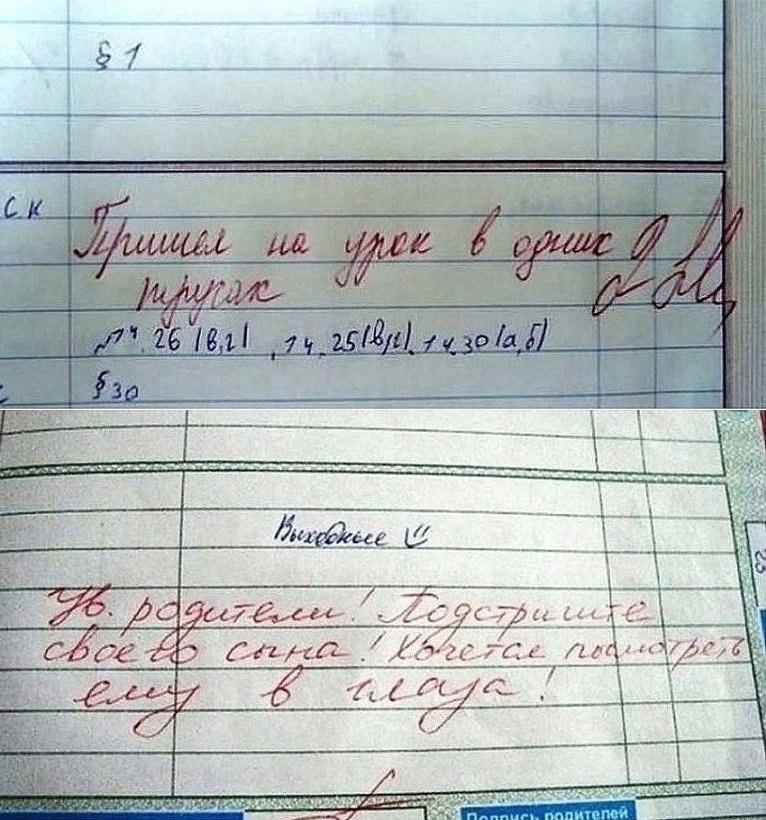 § 1
ск
Пришел на урок в одних
трусах
№14.26 (в,г), 14.25(в,г), 14.30(а,б)
§30
Выходные
Ув. родители! Подстригите
своего сына! Хочется посмотреть
ему в глаза!
Подпись родителей